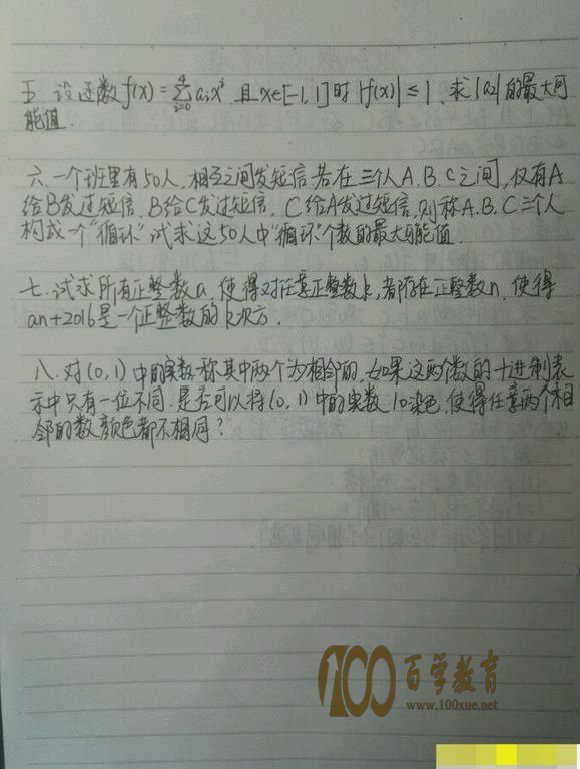 五 设函数 f(x) = Σ_{i=0}^{4} a_i x^i 且 x∈[-1,1] 时 |f(x)| ≤ 1, 求 |a₂| 的最大可
能值.
六.一个班里有50人,相互之间发短信.若在三个人A.B.C之间,仅有A
给B发过短信,B给C发过短信,C给A发过短信,则称A.B.C三个人
构成一个“循环”试求这50人中“循环”个数的最大可能值.
七.试求所有正整数a,使得对任意正整数k,都存在正整数n,使得
an+2016是一个正整数的k次方.
八.对(0,1)中的实数,称其中两个为相邻的,如果这两个数的十进制表
示中只有一位不同.是否可以将(0,1)中的实数10染色,使得任意两个相
邻的数颜色都不相同?
100百学教育
www.100xue.net